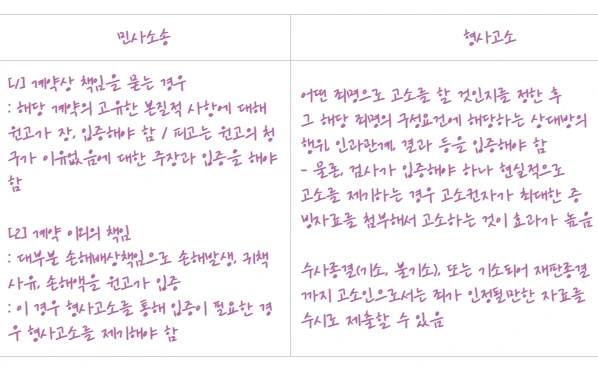 민사소송
형사고소
[1] 계약상 책임을 묻는 경우
: 해당 계약의 고유한 본질적 사항에 대해
원고가 장, 입증해야 함 / 피고는 원고의 청
구가 이유없음에 대한 주장과 입증을 해야
함
[2] 계약 이외의 책임
: 대부분 손해배상책임으로 손해발생, 귀책
사유, 손해액을 원고가 입증
: 이 경우 형사고소를 통해 입증이 필요한 경
우 형사고소를 제기해야 함
어떤 죄명으로 고소를 할 것인지를 정한 후
그 해당 죄명의 구성요건에 해당하는 상대방의
행위, 인과관계, 결과 등을 입증해야 함
- 물론, 검사가 입증해야 하나 현실적으로
고소를 제기하는 경우 고소권자가 최대한 증
빙자료를 첨부해서 고소하는 것이 효과가 높음
수사종결(기소, 불기소), 또는 기소되어 재판종결
까지 고소인으로서는 죄가 인정될만한 자료를
수시로 제출할 수 있음